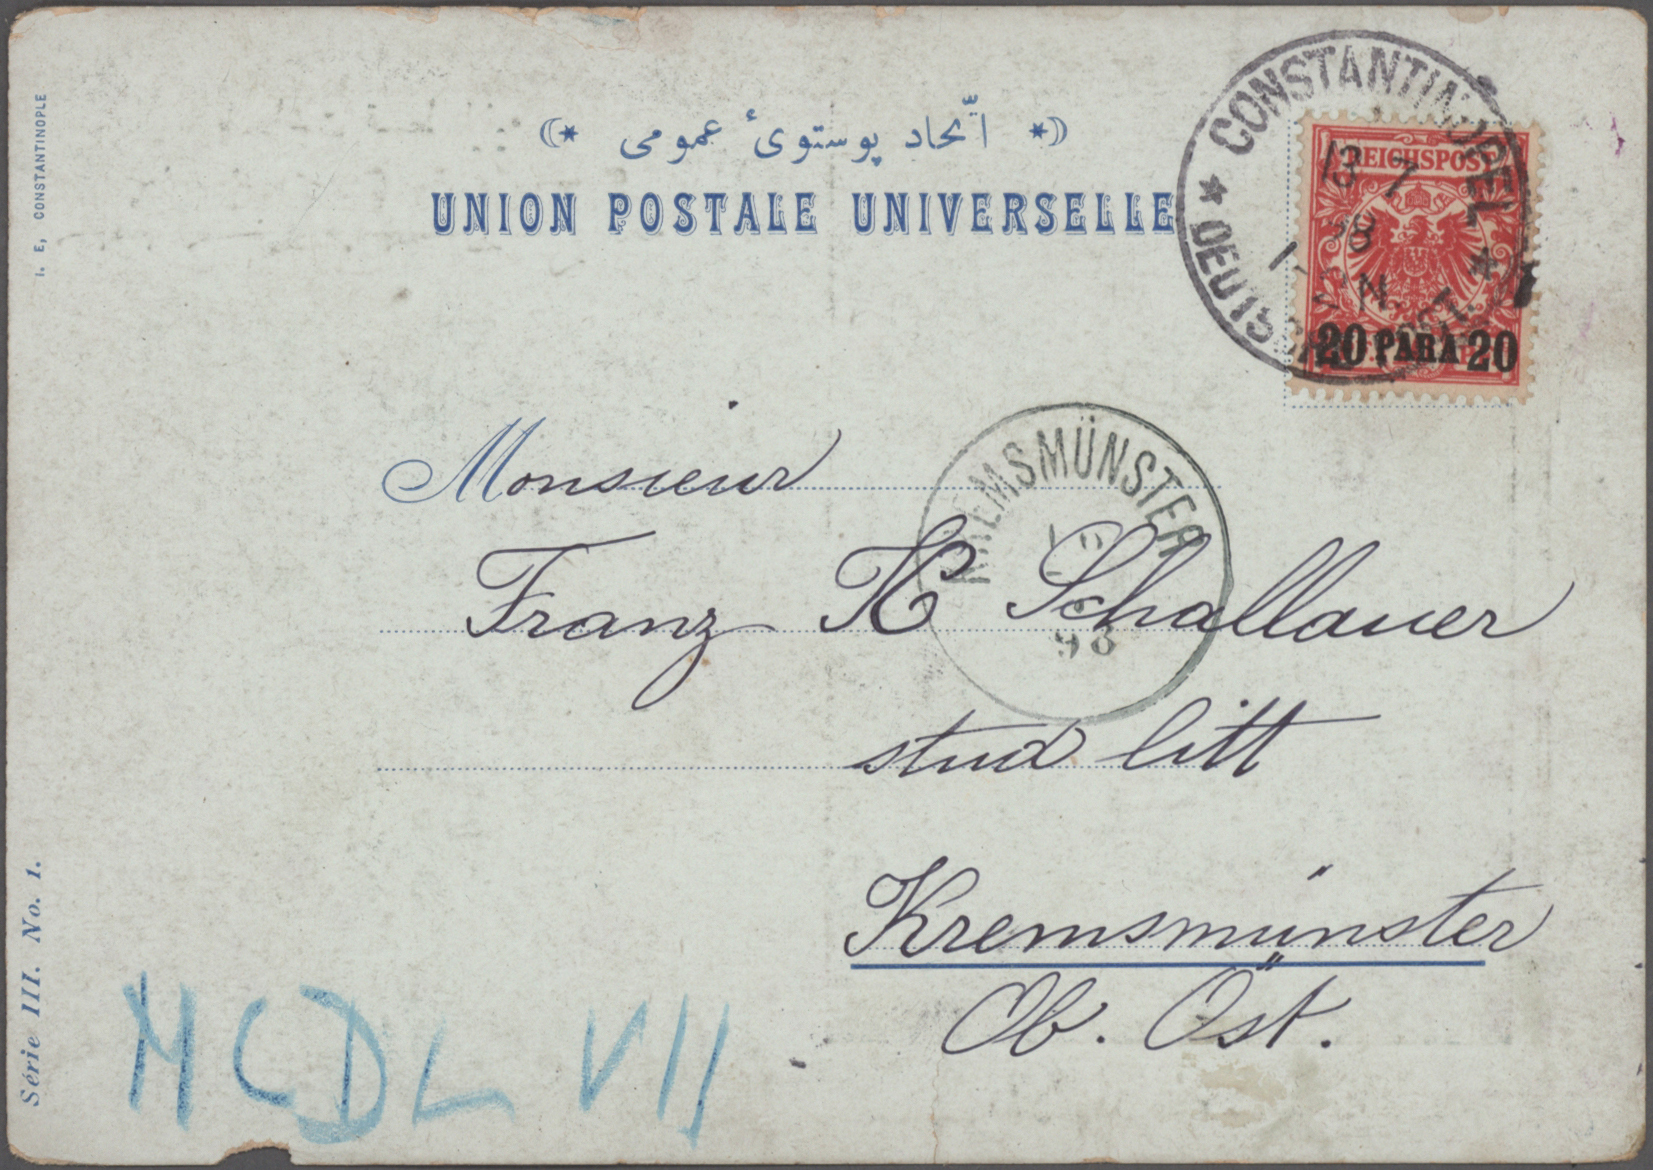 اتّحاد پوستوئ عمومی
UNION POSTALE UNIVERSELLE
I. E, CONSTANTINOPLE
CONSTANTINOPEL
13 7
98
DEUTSCHE POST
REICHSPOST
20 PARA 20
Monsieur
KREMSMÜNSTER
98
Franz H Schallauer
stud litt
Kremsmünster
Ob. Öst.
Série III. No. 1.
MCDL VII